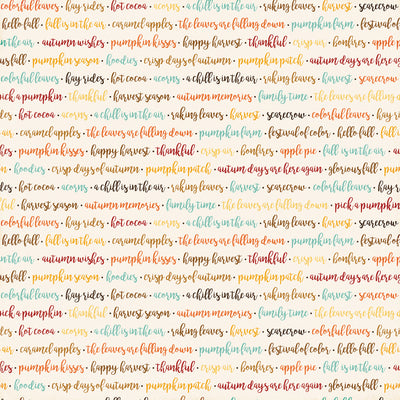 colorful leaves • hay rides • hot cocoa • acorns • a chill is in the air • raking leaves • harvest • scarecrow
hello fall • fall is in the air • caramel apples • the leaves are falling down • pumpkin farm • festival of
in the air • autumn wishes • pumpkin kisses • happy harvest • thankful • crisp air • bonfires • apple pie
us fall • pumpkin season • hoodies • crisp days of autumn • pumpkin patch • autumn days are her
colorful leaves • hay rides • hot cocoa • acorns • a chill is in the air • raking leaves • harvest • scarecrow
pick a pumpkin • thankful • harvest season • autumn memories • family time • the leaves are falling
des • hot cocoa • acorns • a chill is in the air • raking leaves • scarecrow • colorful leaves • hay ri
air • caramel apples • the leaves are falling down • pumpkin farm • festival of color • hello fall • fall
hes • pumpkin kisses • happy harvest • thankful • crisp air • bonfires • apple pie • fall is in the air •
on • hoodies • crisp days of autumn • pumpkin patch • autumn days are here again • glorious fall •
des • hot cocoa • acorns • a chill is in the air • raking leaves • scarecrow • colorful leaves • hay r
ful • harvest season • autumn memories • family time • the leaves are falling down • pick a pumpkin
colorful leaves • hay rides • hot cocoa • acorns • a chill is in the air • raking leaves • harvest • scarecrow
hello fall • fall is in the air • caramel apples • the leaves are falling down • pumpkin farm • festival of
in the air • autumn wishes • pumpkin kisses • happy harvest • thankful • crisp air • bonfires • apple pie
us fall • pumpkin season • hoodies • crisp days of autumn • pumpkin patch • autumn days are her
colorful leaves • hay rides • hot cocoa • acorns • a chill is in the air • raking leaves • harvest • scarecrow
pick a pumpkin • thankful • harvest season • autumn memories • family time • the leaves are falling
des • hot cocoa • acorns • a chill is in the air • raking leaves • scarecrow • colorful leaves • hay ri
air • caramel apples • the leaves are falling down • pumpkin farm • festival of color • hello fall • fall
hes • pumpkin kisses • happy harvest • thankful • crisp air • bonfires • apple pie • fall is in the air •
on • hoodies • crisp days of autumn • pumpkin patch • autumn days are here again • glorious fall •